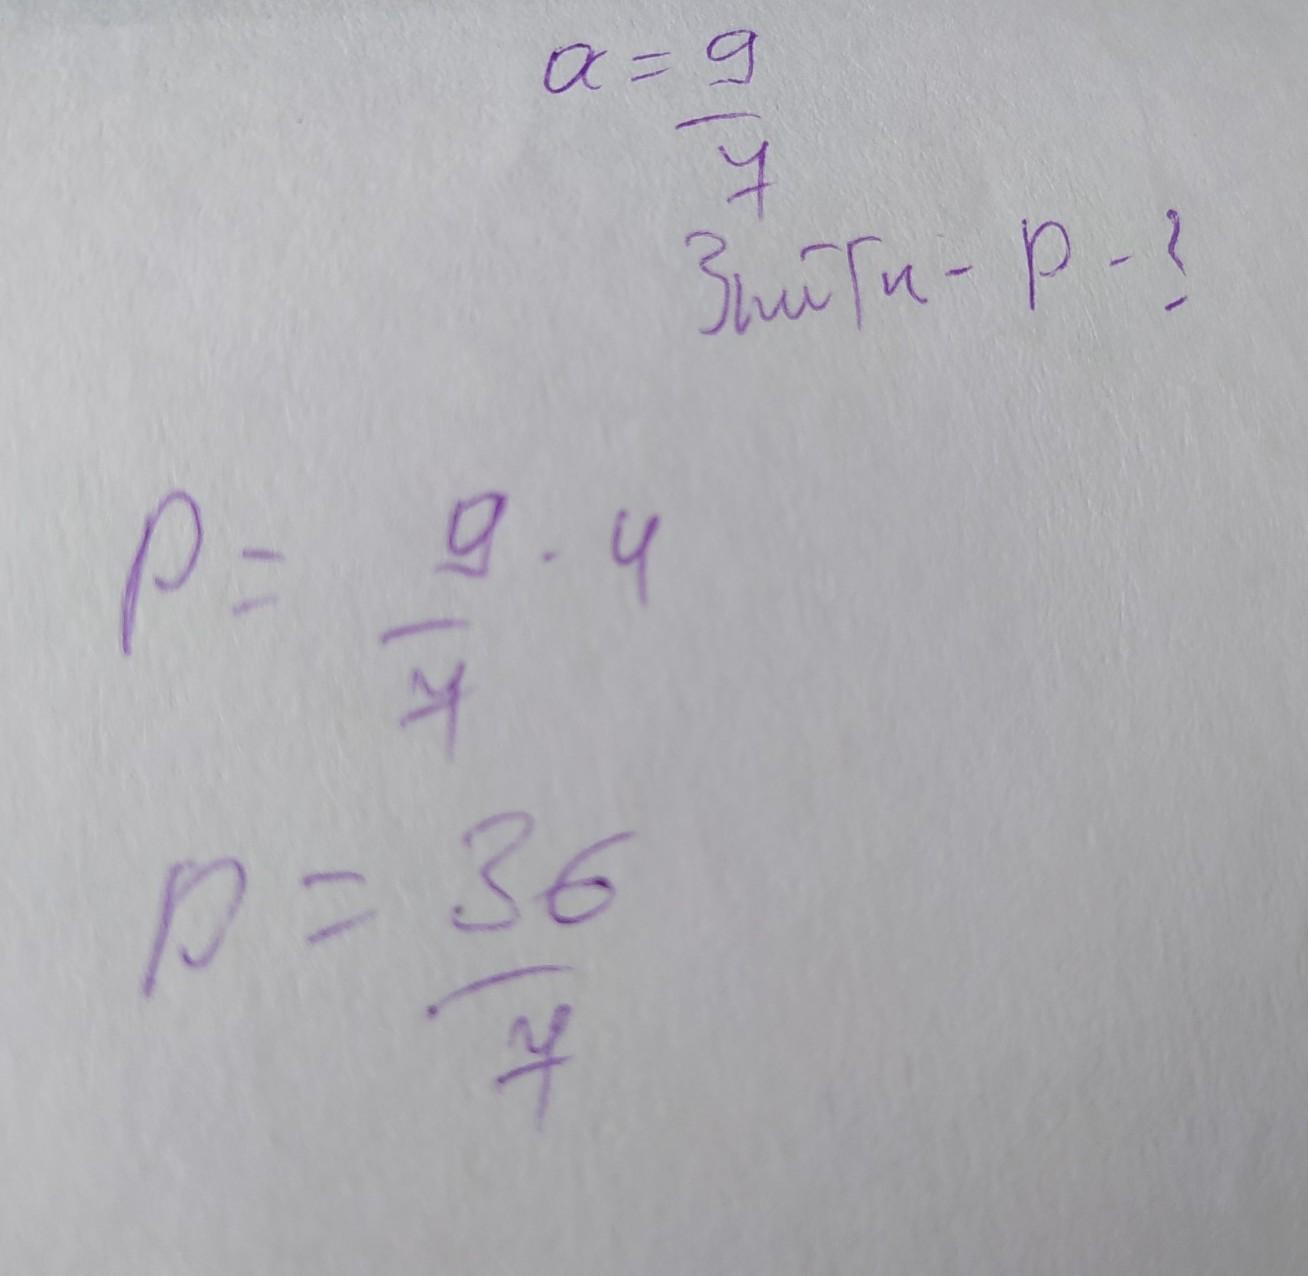 a = 9/7
Знйти - P - ?
P = 9/7 · 4
P = 36/7